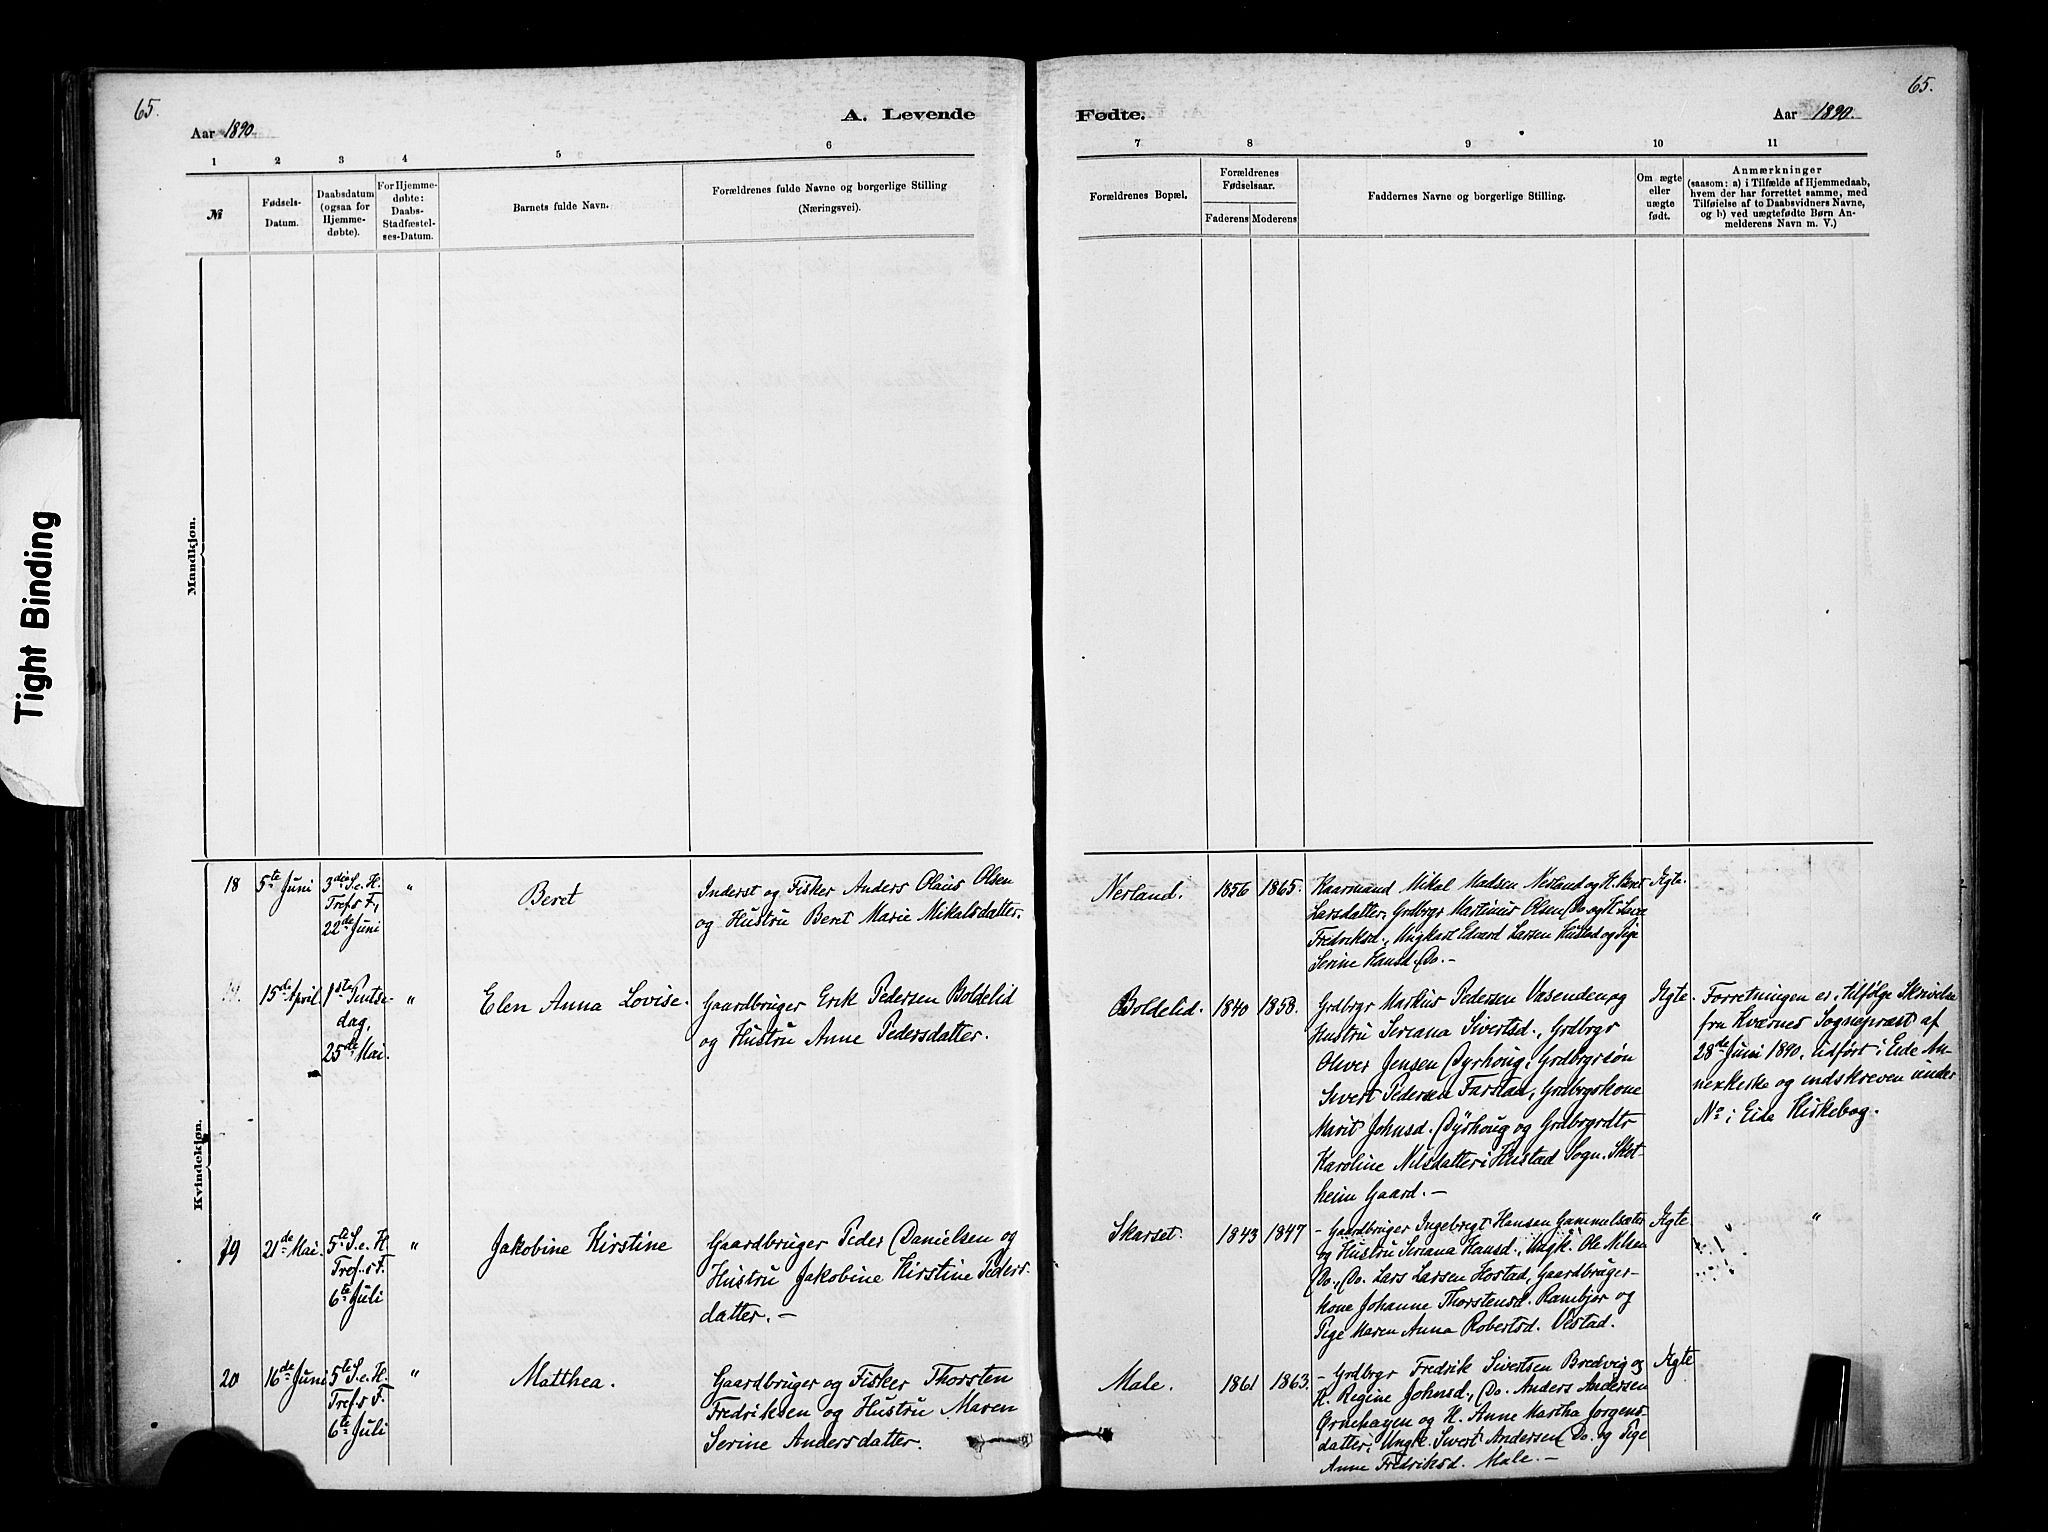 65.
Aar 1890.
A. Levende
1 2 3 4 5 6
№
Fødsels-
Datum.
Daabsdatum
(ogsaa for
Hjemme-
døbte).
For Hjemme-
døbte:
Daabs-
Stadfæstel-
ses-Datum.
Barnets fulde Navn.
Forældrenes fulde Navne og borgerlige Stilling
(Næringsvei).
Mandkjøn.
Kvindekjøn.
18 5te Juni
3die S. e. H.
Tref. s F,
22de Juni
"
Beret
Inderst og Fisker Anders Olaus Olsen
og Hustru Beret Marie Mikalsdatter.
15de April
1ste Pintse-
dag,
25de Mai.
"
Elen Anna Lovise.
Gaardbruger Erik Pedersen Boldelid
og Hustru Anne Pedersdatter.
19 21de Mai.
5te S. e. H.
Tref. s F.
6te Juli
"
Jakobine Kirstine
Gaardbruger Peder Danielsen og
Hustru Jakobine Kirstine Peders-
datter. –
20 16de Juni
5te S. e. H.
Tref. s F.
6te Juli
"
Matthea.
Gaardbruger og Fisker Thorsten
Fredriksen og Hustru Maren
Serine Andersdatter.
65.
Fødte.
Aar 1890.
7 8 9 10 11
Forældrenes Bopæl.
Forældrenes
Fødselsaar.
Faderens Moderens
Faddernes Navne og borgerlige Stilling.
Om ægte
eller
uægte
født.
Anmærkninger
(saasom: a) i Tilfælde af Hjemmedaab,
hvem der har forrettet samme, med
Tilføielse af to Daabsvidners Navne,
og b) ved uægtefødte Børn An-
melderens Navn m. V.)
Nerland. 1856 1865.
Kaarmand Mikal Madsen Nerland og H. Beret
Larsdatter, Grdbrgr Martinus Olsen Do og H.
Fredriksd., Ungkarl Edvard Larsen Hustad og Pige
Serine Hansd. Do. –
Ægte.
Boldelid. 1840 1858.
Grdbrgr Markus Pedersen Vasenden og
Hustru Seriana Sivertsd., Grdbrgr
Oliver Jensen Dyrhoug, Grdbrgrsøn
Sivert Pedersen Farstad, Grdbrgrkone
Marit Johnsd. Dyrhoug og Grdbrgrdtr
Karoline Nilsdatter i Hustad Sogn. Skot-
heim Gaard. –
Ægte.
Forretningen er, tilfølge Skrivelse
fra Kværnes Sognepræst af
28de Juni 1890, udført i Eide An-
nexkirke og indskreven under
No i Eide Kirkebog.
Skarset. 1843 1847
– Gaardbruger Ingebrigt Hansen Gammelsæter
og Hustru Seriana Hansd., Ungk. Ole Nilsen
Do., Do. Lars Larsen Hostad, Gaardbruger-
kone Johanne Thorstensd. Rambjør og
Pige Maren Anna Robertsd. Vestad.
Ægte
"
Male. 1861 1863.
– Grdbrgr Fredrik Sivertsen Bredvig og
H. Regine Johnsd., Do. Anders Andersen
Ørnehaugen og H. Anne Martha Jørgens-
datter, Ungk. Sivert Andersen Do. og Pige
Anne Fredriksd. Male. –
Ægte
Tight Binding